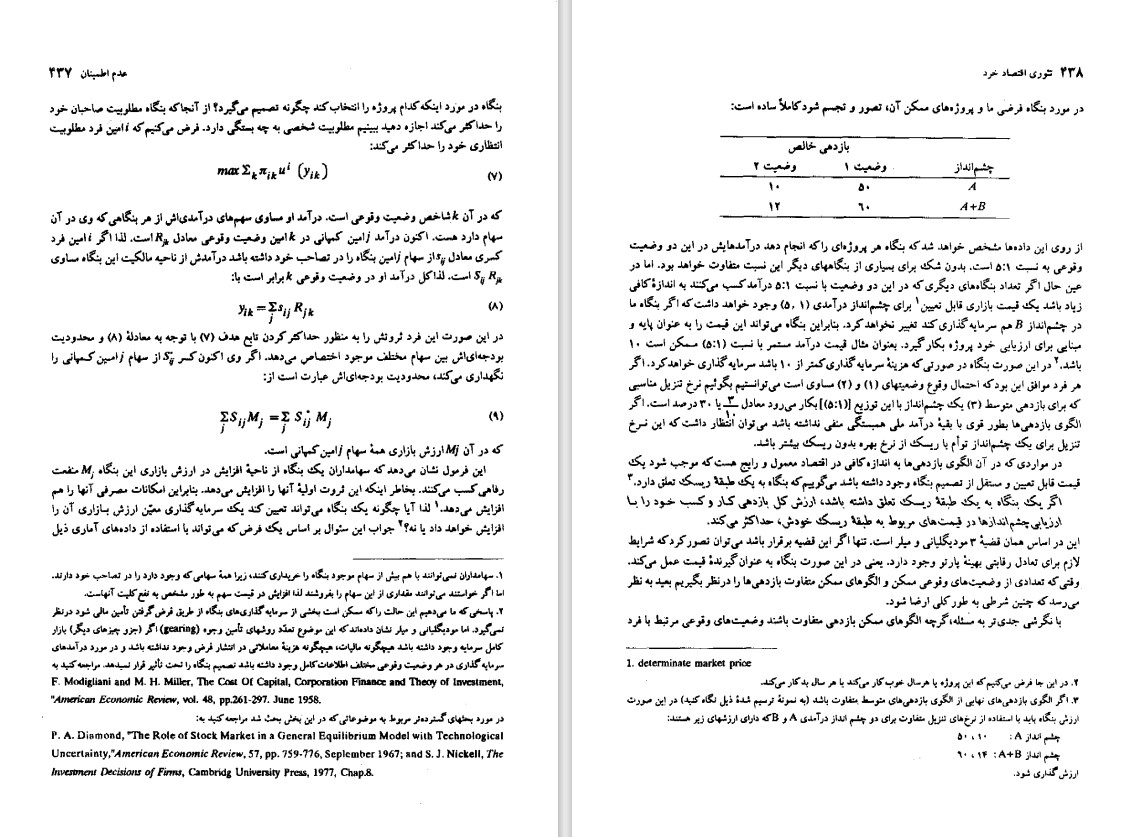 عدم اطمینان ۴۳۷
بنگاه در مورد اینکه کدام پروژه را انتخاب کند چگونه تصمیم می‌گیرد؟ از آنجا که بنگاه مطلوبیت صاحبان خود
را حداکثر می‌کند اجازه دهید ببینیم مطلوبیت شخصی به چه بستگی دارد. فرض می‌کنیم که i امین فرد مطلوبیت
انتظاری خود را حداکثر می‌کند:
max Σ_k π_ik u^i (y_ik) (۷)
که در آن k شاخص وضعیت وقوعی است. درآمد او مساوی سهم‌های درآمدی‌اش از هر بنگاهی که وی در آن
سهام دارد هست. اکنون درآمد j امین کمپانی در k امین وضعیت وقوعی معادل R_jk است. لذا اگر i امین فرد
کسری معادل s_ij از سهام j امین بنگاه را در تصاحب خود داشته باشد درآمدش از ناحیه مالکیت این بنگاه مساوی
S_ij R_jk است. لذا کل درآمد او در وضعیت وقوعی k برابر است با:
y_ik = Σ_j s_ij R_jk (۸)
در این صورت این فرد ثروتش را به منظور حداکثر کردن تابع هدف (۷) با توجه به معادلهٔ (۸) و محدودیت
بودجه‌ای‌اش بین سهام مختلف موجود اختصاص می‌دهد. اگر وی اکنون کسر S°_ij از سهام j امین کمپانی را
نگهداری می‌کند، محدودیت بودجه‌ای‌اش عبارت است از:
Σ_j S_ij M_j = Σ_j S°_ij M_j (۹)
که در آن Mj ارزش بازاری همهٔ سهام j امین کمپانی است.
این فرمول نشان می‌دهد که سهامداران یک بنگاه از ناحیهٔ افزایش در ارزش بازاری این بنگاه M_j منفعت
رفاهی کسب می‌کنند. بخاطر اینکه این ثروت اولیهٔ آنها را افزایش می‌دهد. بنابراین امکانات مصرفی آنها را هم
افزایش می‌دهد.۱ لذا آیا چگونه یک بنگاه می‌تواند تعیین کند یک سرمایه گذاری معیّن ارزش بازاری آن را
افزایش خواهد داد یا نه؟۲ جواب این سئوال بر اساس یک فرض که می‌تواند با استفاده از داده‌های آماری ذیل
۱. سهامداران نمی‌توانند با هم بیش از سهام موجود بنگاه را خریداری کنند، زیرا همهٔ سهامی که وجود دارد را در تصاحب خود دارند.
اما اگر خواستند می‌توانند مقداری از این سهام را بفروشند لذا افزایش در قیمت سهم به طور مشخصی به نفع کلیت آنهاست.
۲. پاسخی که ما می‌دهیم این حالت را که ممکن است بخشی از سرمایه گذاری‌های بنگاه از طریق قرض گرفتن تأمین مالی شود درنظر
نمی‌گیرد. اما مودیگلیانی و میلر نشان داده‌اند که این موضوع تعدّد روشهای تأمین وجوه (gearing) اگر (جزو چیزهای دیگر) بازار
کامل سرمایه وجود داشته باشد هیچگونه مالیات، هیچگونه هزینهٔ معاملاتی در انتشار قرض وجود نداشته باشد و در مورد درآمدهای
سرمایه گذاری در هر وضعیت وقوعی مختلف اطلاعات کامل وجود داشته باشد تصمیم بنگاه را تحت تأثیر قرار نمیدهد. مراجعه کنید به
F. Modigliani and M. H. Miller, The Cost Of Capital, Corporation Finance and Theoy of Investment,
"American Economic Review, vol. 48, pp.261-297. June 1958.
در مورد بحثهای گسترده‌تر مربوط به موضوعاتی که در این بخش بحث شد مراجعه کنید به:
P. A. Diamond, "The Role of Stock Market in a General Equilibrium Model with Technological
Uncertainty,"American Economic Review, 57, pp. 759-776, September 1967; and S. J. Nickell, The
Investment Decisions of Firms, Cambridg University Press, 1977, Chap.8.
۴۳۸ تئوری اقتصاد خرد
در مورد بنگاه فرضی ما و پروژه‌های ممکن آن، تصور و تجسم شود کاملاً ساده است:
بازدهی خالص
چشم‌انداز وضعیت ۱ وضعیت ۲
A ۵۰ ۱۰
A+B ۶۰ ۱۲
از روی این داده‌ها مشخص خواهد شد که بنگاه هر پروژه‌ای را که انجام دهد درآمدهایش در این دو وضعیت
وقوعی به نسبت ۵:۱ است. بدون شک برای بسیاری از بنگاههای دیگر این نسبت متفاوت خواهد بود. اما در
عین حال اگر تعداد بنگاه‌های دیگری که در این دو وضعیت با نسبت ۵:۱ درآمد کسب می‌کنند به اندازهٔ کافی
زیاد باشد یک قیمت بازاری قابل تعیین۱ برای چشم‌انداز درآمدی (۵ , ۱) وجود خواهد داشت که اگر بنگاه ما
در چشم‌انداز B هم سرمایه گذاری کند تغییر نخواهد کرد. بنابراین بنگاه می‌تواند این قیمت را به عنوان پایه و
مبنایی برای ارزیابی خود پروژه بکار گیرد. بعنوان مثال قیمت درآمد مستمر با نسبت (۵:۱) ممکن است ۱۰
باشد.۲ در این صورت بنگاه در صورتی که هزینهٔ سرمایه گذاری کمتر از ۱۰ باشد سرمایه گذاری خواهد کرد. اگر
هر فرد موافق این بود که احتمال وقوع وضعیتهای (۱) و (۲) مساوی است می‌توانستیم بگوئیم نرخ تنزیل مناسبی
که برای بازدهی متوسط (۳) یک چشم‌انداز با این توزیع [(۵:۱)] بکار می‌رود معادل ۳/۱۰ یا ۳۰ درصد است. اگر
الگوی بازدهی‌ها بطور قوی با بقیهٔ درآمد ملی همبستگی منفی نداشته باشد می‌توان انتظار داشت که این نرخ
تنزیل برای یک چشم‌انداز توأم با ریسک از نرخ بهره بدون ریسک بیشتر باشد.
در مواردی که در آن الگوی بازدهی‌ها به اندازه کافی در اقتصاد معمول و رایج هست که موجب شود یک
قیمت قابل تعیین و مستقل از تصمیم بنگاه وجود داشته باشد می‌گوییم که بنگاه به یک طبقهٔ ریسک تعلق دارد.۳
اگر یک بنگاه به یک طبقهٔ ریسک تعلق داشته باشد، ارزش کل بازدهی کار و کسب خود را با
ارزیابی چشم‌اندازها در قیمت‌های مربوط به طبقهٔ ریسک خودش، حداکثر می‌کند.
این در اساس همان قضیهٔ ۳ مودیگلیانی و میلر است. تنها اگر این قضیه برقرار باشد می‌توان تصور کرد که شرایط
لازم برای تعادل رقابتی بهینهٔ پارتو وجود دارد. یعنی در این صورت بنگاه به عنوان گیرندهٔ قیمت عمل می‌کند.
وقتی که تعدادی از وضعیت‌های وقوعی ممکن و الگوهای ممکن متفاوت بازدهی‌ها را درنظر بگیریم بعید به نظر
می‌رسد که چنین شرطی به طور کلی ارضا شود.
با نگرشی جدی‌تر به مسئله، گرچه الگوهای ممکن بازدهی متفاوت باشند وضعیت‌های وقوعی مرتبط با فرد
1. determinate market price
۲. در این جا فرض می‌کنیم که این پروژه یا هرسال خوب کار می‌کند یا هر سال بد کار می‌کند.
۳. اگر الگوی بازدهی‌های نهایی از الگوی بازدهی‌های متوسط متفاوت باشد (به نمونهٔ ترسیم شدهٔ ذیل نگاه کنید) در این صورت
ارزش بنگاه باید با استفاده از نرخ‌های تنزیل متفاوت برای دو چشم انداز درآمدی A و B که دارای ارزشهای زیر هستند:
چشم انداز A : ۱۰ ، ۵۰
چشم انداز A+B : ۱۴ ، ۶۰
ارزش گذاری شود.